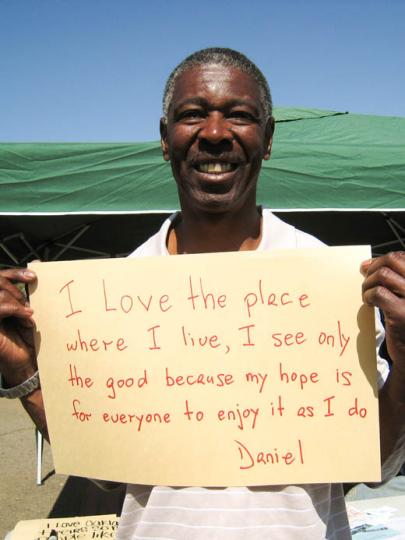 I Love the place
where I live, I see only
the good because my hope is
for everyone to enjoy it as I do
Daniel
I LOVE